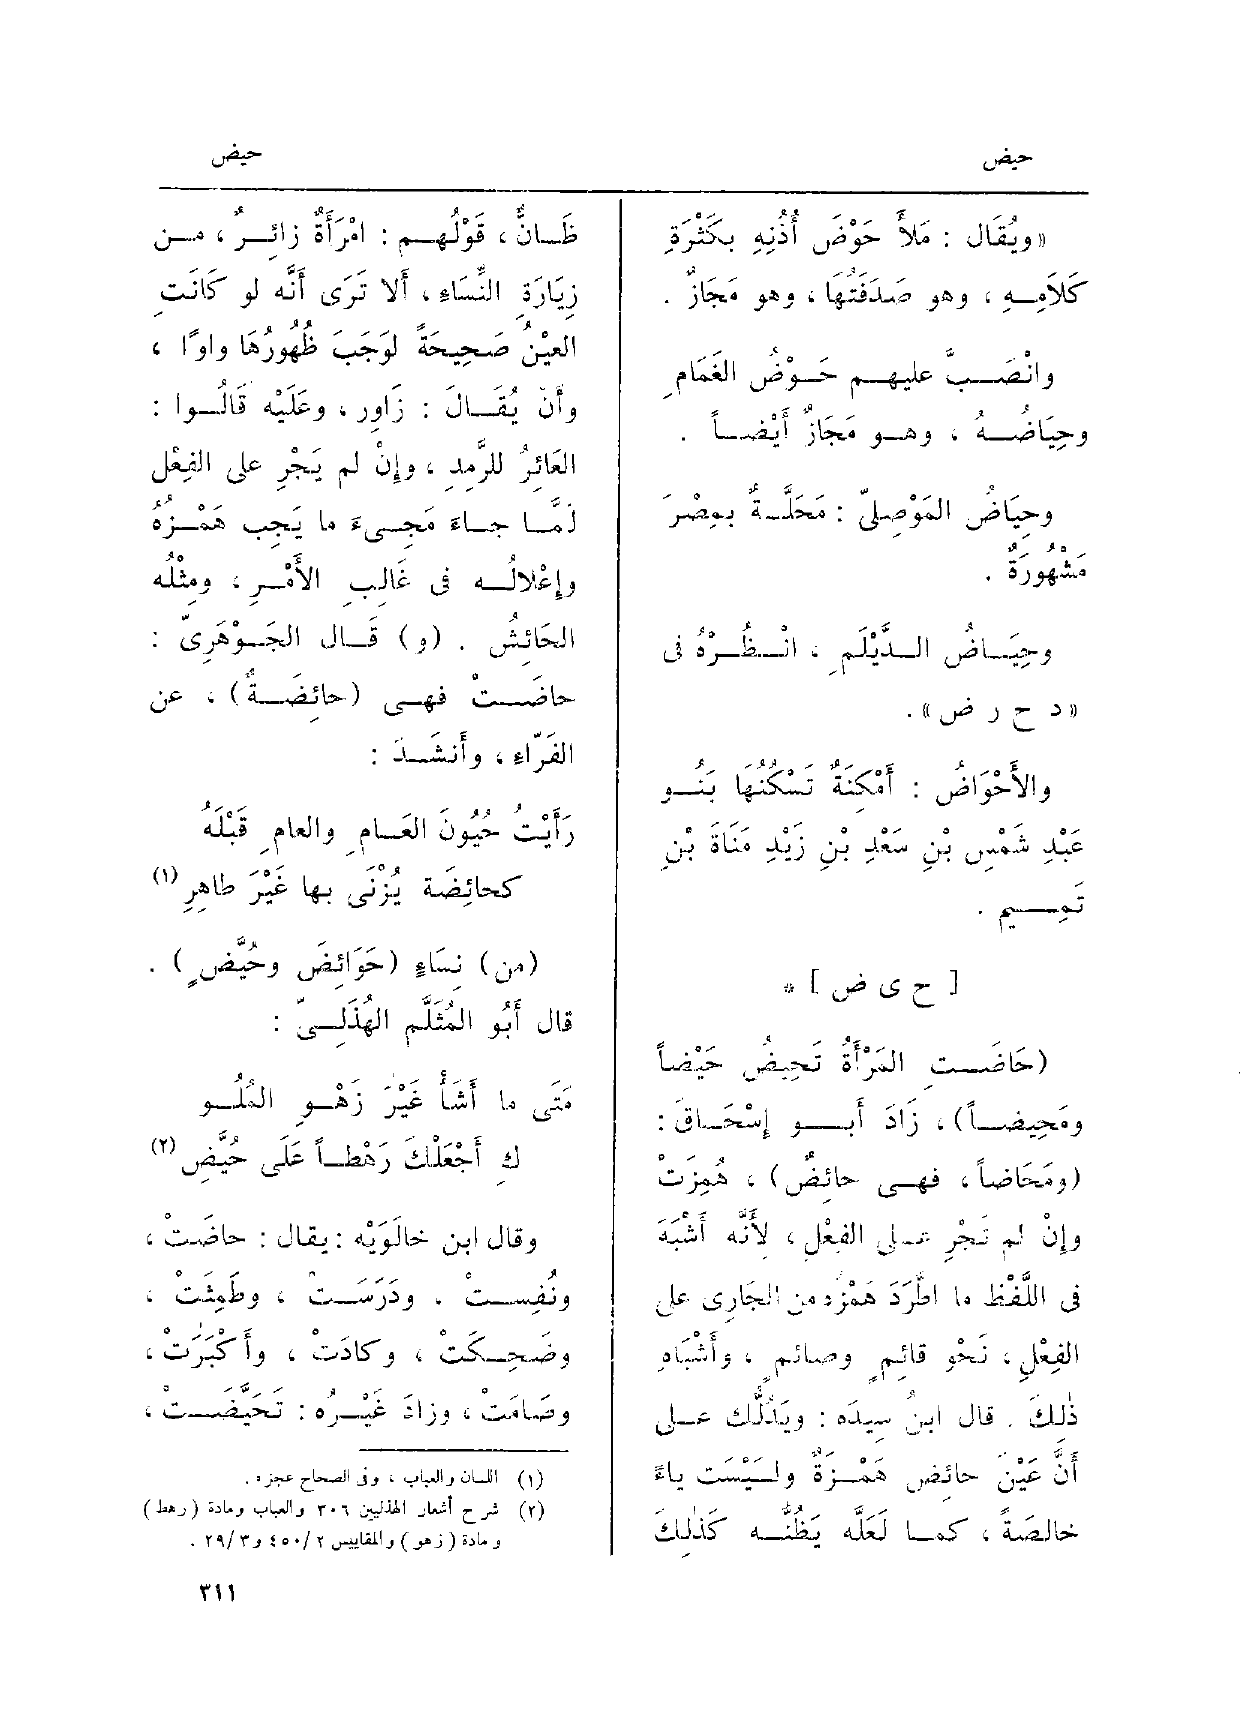 حيض
حيض
«ويُقَال : مَلأَ حَوْضَ أُذُنِهِ بكَثْرَةِ
كَلاَمِــهِ ، وهو صَدَفَتُها ، وهو مَجَازٌ .
وانْصَــبَّ عليهــم حَــوْضُ الغَمَامِ
وحِيَاضُــهُ ، وهــو مَجَازٌ أَيْضــاً .
وحِيَاضُ المَوْصِلِىّ : مَحَلَّــةٌ بــمِصْرَ
مَشْهُورَةٌ .
وحِيَــاضُ الــدَّيْلَمِ ، انْــظُــرْهُ فى
«د ح ر ض» .
والأَحْوَاضُ : أَمْكِنَةٌ تَسْكُنُهَا بَنُــو
عَبْدِ شَمْسِ بْنِ سَعْدِ بْنِ زَيْدِ مَنَاةَ بْنِ
تَمِــيم .
[ ح ى ض ] *
(حَاضَــتِ المَرْأَةُ تَحِيضُ حَيْضاً
ومَحِيضــاً) ، زَادَ أَبــو إِسْحَــاقَ :
(ومَحَاضاً ، فهــى حائِضٌ) ، هُمِزَتْ
وإِنْ لم تَجْرِ عــلى الفِعْلِ ، لأَنَّه أَشْبَهَ
فى اللَّفْظِ ما اطَّرَدَ هَمْزُه من الجَارِى على
الفِعْلِ ، نَحْو قائمٍ وصائمٍ ، وأَشْبَاهِ
ذٰلِكَ . قال ابنُ سِيدَه : ويَدُلُّك عــلى
أَنَّ عَيْنَ حائِض هَمْــزَةٌ ولَــيْسَت ياءً
خالصَةً ، كمــا لَعَلَّه يَظُنُّــه كَذٰلِكَ
ظَــانٌّ ، قَوْلُهــم : امْرَأَةٌ زائِــرٌ ، مــن
زِيَارَةِ النِّسَاءِ ، أَلا تَرَى أَنَّه لو كَانَتِ
العَيْنُ صَحِيحَةً لوَجَبَ ظُهُورُهَا واوًا ،
وأَنْ يُقَــالَ : زَاوِر ، وعَلَيْه قَالُــوا :
العَائِرُ للرَّمِدِ ، وإِنْ لم يَجْرِ على الفِعْل
لَمَّــا جــاءَ مَجِــىءَ ما يَجِب هَمْــزُهُ
وإِعْلالُــه فى غَالِبِ الأَمْــرِ ، ومِثْلُه
الحَائِشُ . (و) قَــال الجَــوْهَرِىّ :
حاضَــتْ فهــى (حائِضَــةٌ) ، عن
الفَرّاءِ ، وأَنشَــدَ :
رَأَيْــتُ حُيُونَ العَــامِ والعامِ قَبْلَهُ
كحائِضَة يُزْنَى بها غَيْرَ طاهِرِ (١)
(من) نِسَاءٍ (حَوَائِضَ وحُيَّضٍ) .
قال أَبُو المُثَلَّم الهُذَلِــىّ :
مَتَى ما أَشَأْ غَيْرَ زَهْــوِ المُلُــو
كِ أَجْعَلْكَ رَهْطــاً عَلَى حُيَّضِ (٢)
وقال ابن خالَوَيْه : يقال : حاضَتْ ،
ونُفِســتْ . ودَرَسَــتْ ، وطَمِثَتْ ،
وضَحِــكَتْ ، وكادَتْ ، وأَكْبَرَتْ ،
وصَامَتْ ، وزادَ غَيْــرُه : تَحَيَّضَــتْ ،
(١) اللسان والعباب ، وفى الصحاح عجزه .
(٢) شرح أشعار الهذليين ٣٠٦ والعباب ومادة (رهط)
ومادة (زهو) والمقاييس ٢ /٤٥٠ و٣ /٢٩ .
٣١١